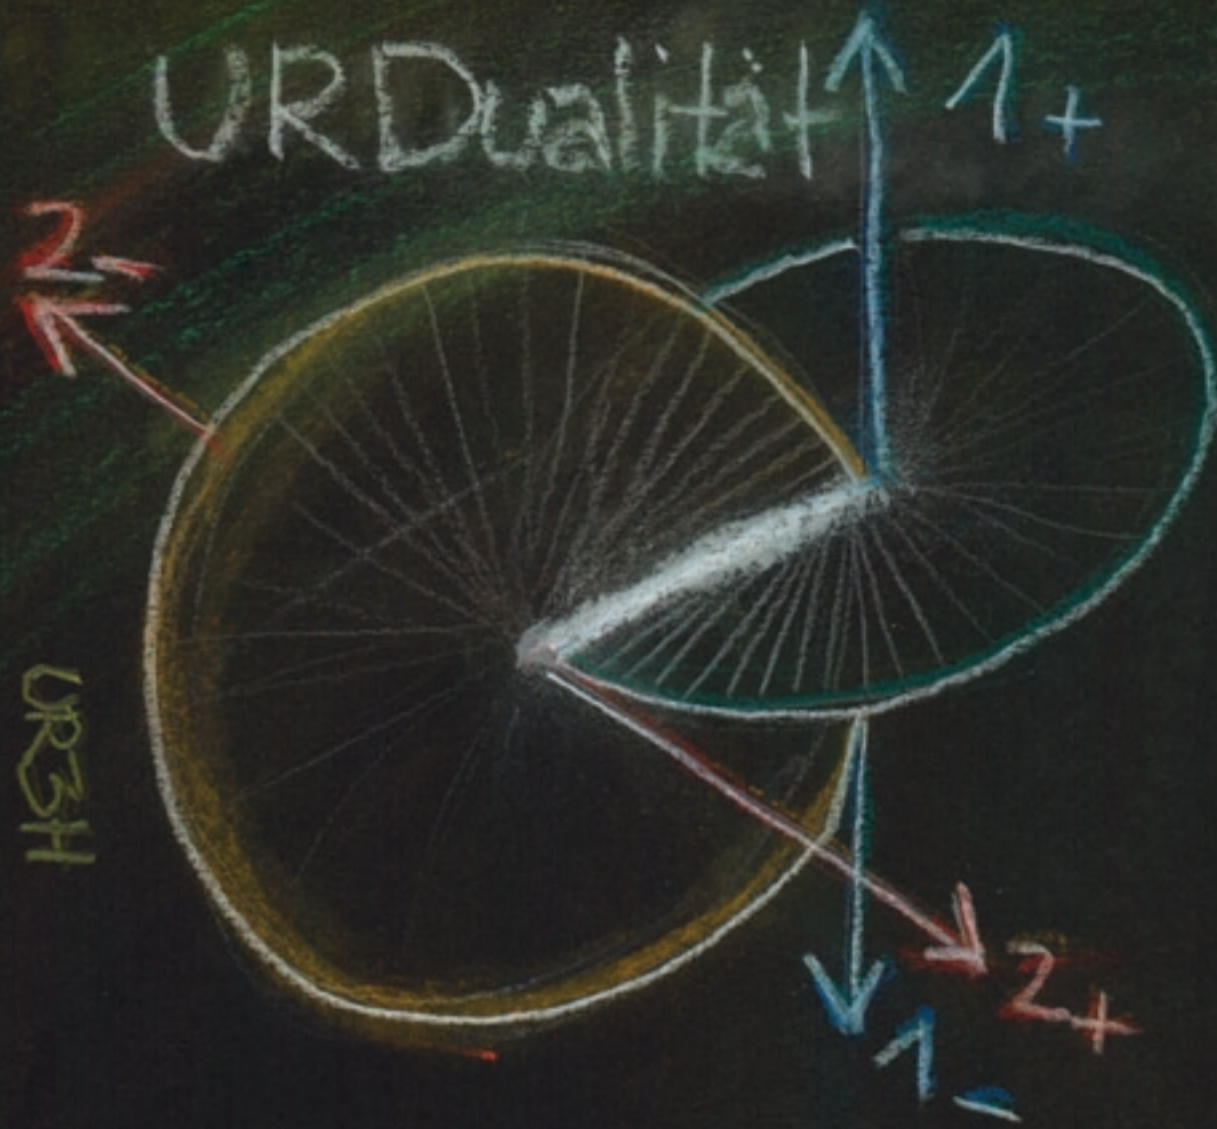 URDualität
1+
2-
UR3H
2+
1-